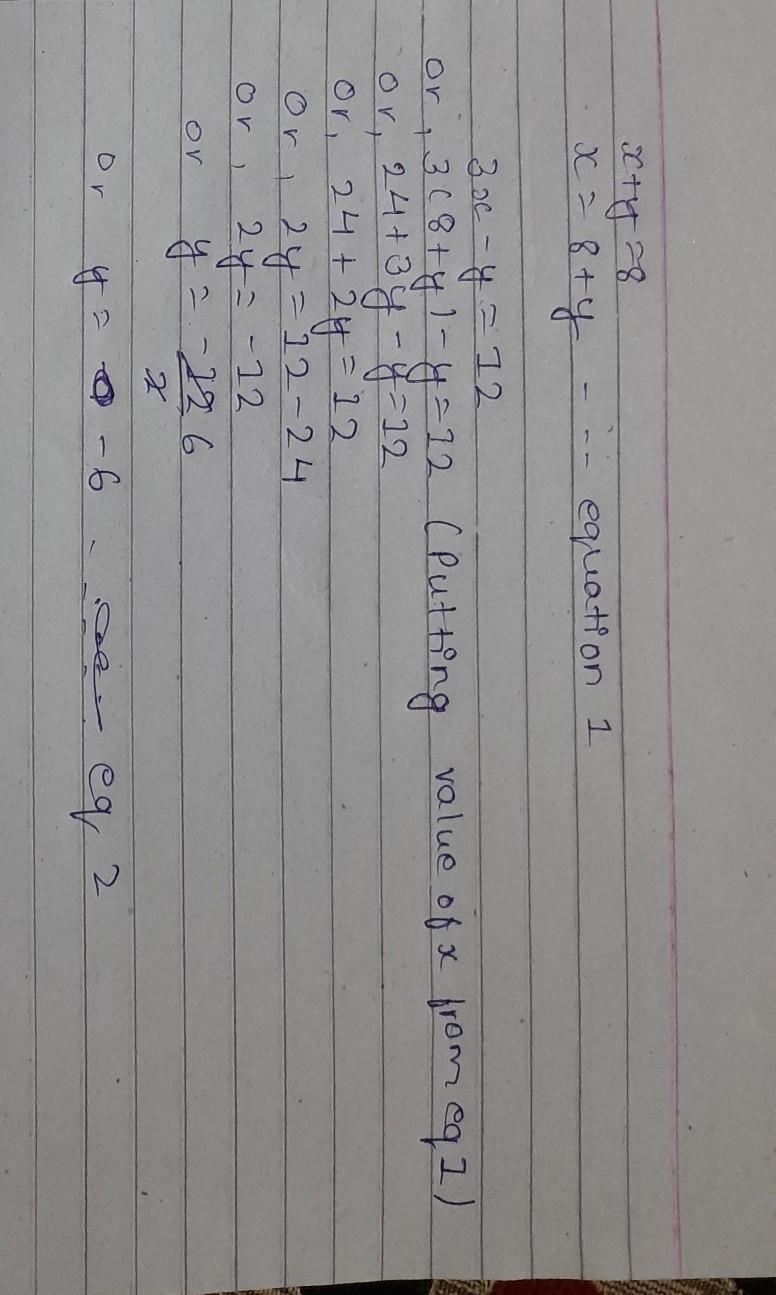 x+y=8
x = 8+y - - - equation 1
3x - y = 12
or, 3(8+y) - y = 12 (Putting value of x from eq 1)
or, 24+3y - y = 12
or, 24 + 2y = 12
or, 2y = 12 - 24
or, 2y = -12
or y = -12 6
2
or y = -6 - eq 2